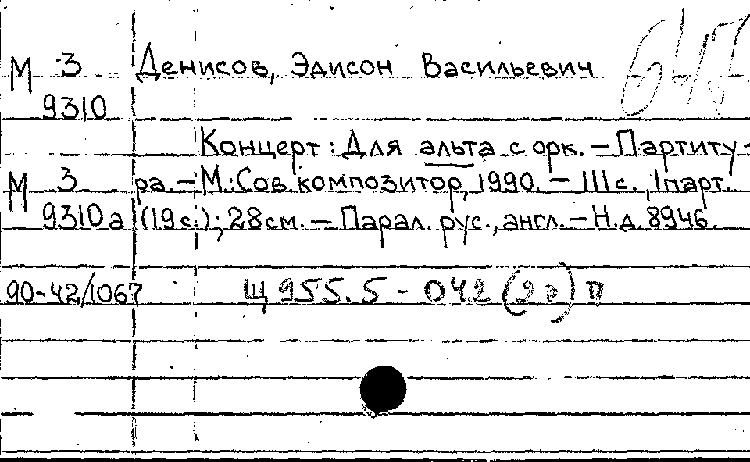 М 3 Денисов, Эдисон Васильевич
9310
Концерт: Для альта с орк. – Партиту-
М 3 ра. – М.: Сов. композитор, 1990. – 111 с., 1 парт.
9310а (19 с.); 28 см. – Парал. рус., англ. – Н.д. 8946.
90-42/1067 Щ 955.5 - 042 (2 ) п